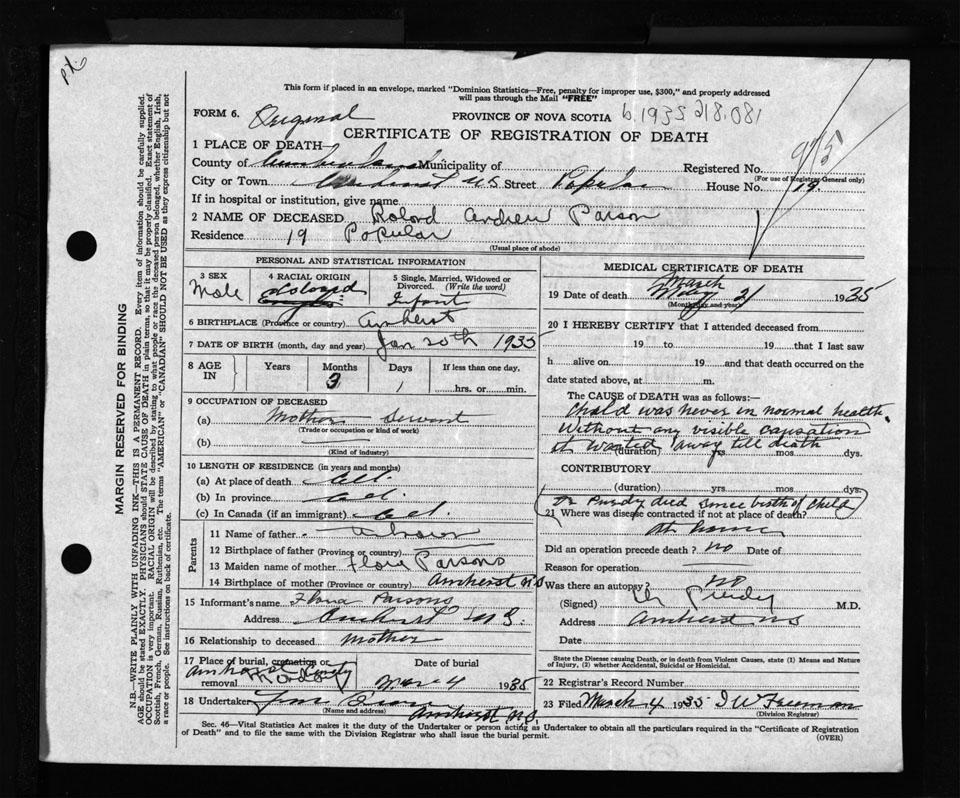 This form if placed in an envelope, marked "Dominion Statistics—Free, penalty for improper use, $300," and properly addressed
will pass through the Mail "FREE"
FORM 6. Original PROVINCE OF NOVA SCOTIA b.1935 218.081
CERTIFICATE OF REGISTRATION OF DEATH
1 PLACE OF DEATH—
County of Cumberland Municipality of Registered No.
(For use of Registrar General only)
City or Town Amherst N.S Street Popular House No. 19.
If in hospital or institution, give name
2 NAME OF DECEASED Rolord Andrew Parson
Residence 19 Popular
(Usual place of abode)
PERSONAL AND STATISTICAL INFORMATION
3 SEX 4 RACIAL ORIGIN 5 Single, Married, Widowed or
Divorced. (Write the word)
Male Colored Infant
6 BIRTHPLACE (Province or country) Amherst
7 DATE OF BIRTH (month, day and year) Jan 20th 1935
8 AGE IN Years Months Days If less than one day,
3 1 hrs. or min.
9 OCCUPATION OF DECEASED
(a) Mother Servent
(Trade or occupation or kind of work)
(b)
(Kind of industry)
10 LENGTH OF RESIDENCE (in years and months)
(a) At place of death
(b) In province
(c) In Canada (if an immigrant)
Parents
11 Name of father
12 Birthplace of father (Province or country)
13 Maiden name of mother Parsons
14 Birthplace of mother (Province or country) Amherst N S
15 Informant's name Parsons
Address Amherst N S.
16 Relationship to deceased Mother
17 Place of burial, cremation or Date of burial
removal Mar 4 1935
18 Undertaker
(Name and address) Amherst N.S.
MEDICAL CERTIFICATE OF DEATH
March
19 Date of death May 2 1935
(Month, day and year)
20 I HEREBY CERTIFY that I attended deceased from
19 to 19 that I last saw
h alive on 19 and that death occurred on the
date stated above, at m.
The CAUSE of DEATH was as follows:—
Child was never in normal health.
Without any visible causation
it wasted away till death
(duration) yrs. mos. dys.
CONTRIBUTORY
(duration) yrs. mos. dys.
Dr Purdy died since birth of child
21 Where was disease contracted if not at place of death?
At home
Did an operation precede death? no Date of
Reason for operation
Was there an autopsy? no
(Signed) Purdy M.D.
Address Amherst N S
Date
State the Disease causing Death, or in death from Violent Causes, state (1) Means and Nature
of Injury, (2) whether Accidental, Suicidal or Homicidal.
22 Registrar's Record Number
23 Filed March 4 1935 I W Freeman
(Division Registrar)
Sec. 46—Vital Statistics Act makes it the duty of the Undertaker or person acting as Undertaker to obtain all the particulars required in the "Certificate of Registration
of Death" and to file the same with the Division Registrar who shall issue the burial permit. (OVER)
MARGIN RESERVED FOR BINDING
N.B.—WRITE PLAINLY WITH UNFADING INK—THIS IS A PERMANENT RECORD. Every item of information should be carefully supplied.
AGE should be stated EXACTLY. PHYSICIANS should STATE CAUSE OF DEATH in plain terms, so that it may be properly classified. Exact statement of
OCCUPATION is very important. RACIAL ORIGIN will be described by stating to what people or race the deceased person belonged, whether English, Irish,
Scottish, French, German, Russian, Ruthenian, etc. The terms "AMERICAN" or "CANADIAN" SHOULD NOT BE USED as they express citizenship but not
a race or people. See instructions on back of certificate.